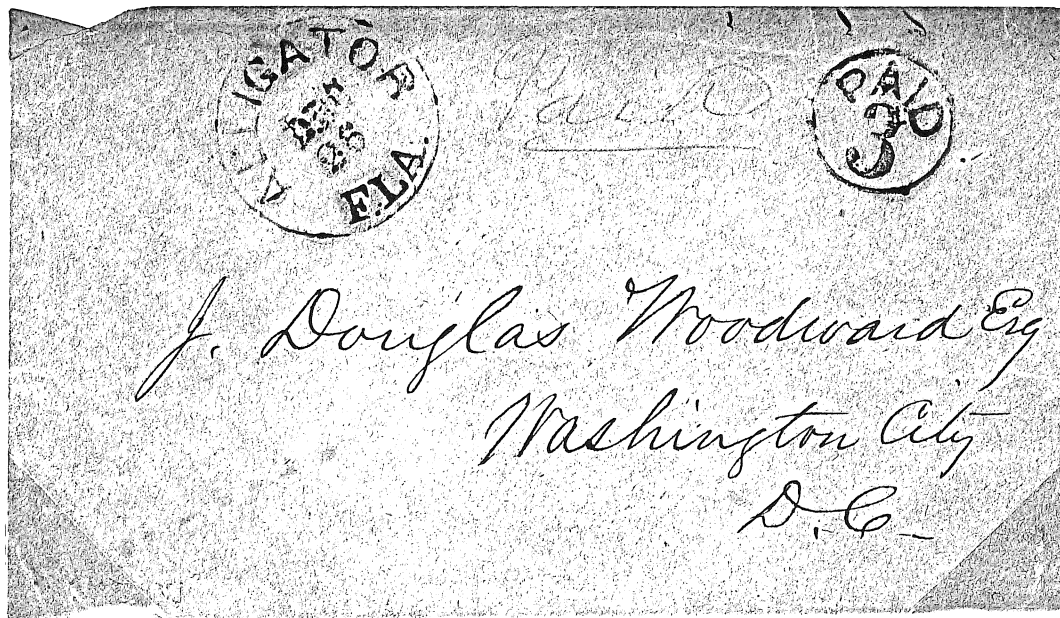 ALLIGATOR FLA.
DEC
26
Paid
PAID
3
J. Douglas Woodward Esq
Washington City
D.C.